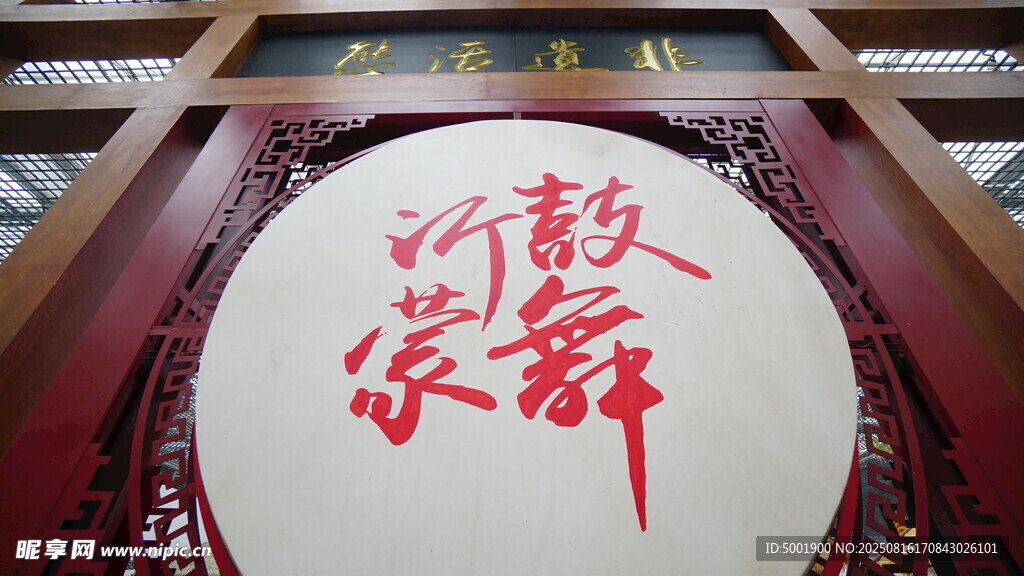 非遺活態
鼓舞
沂蒙
昵享网 www.nipic.cn
ID:5001900 NO:20250816170843026101